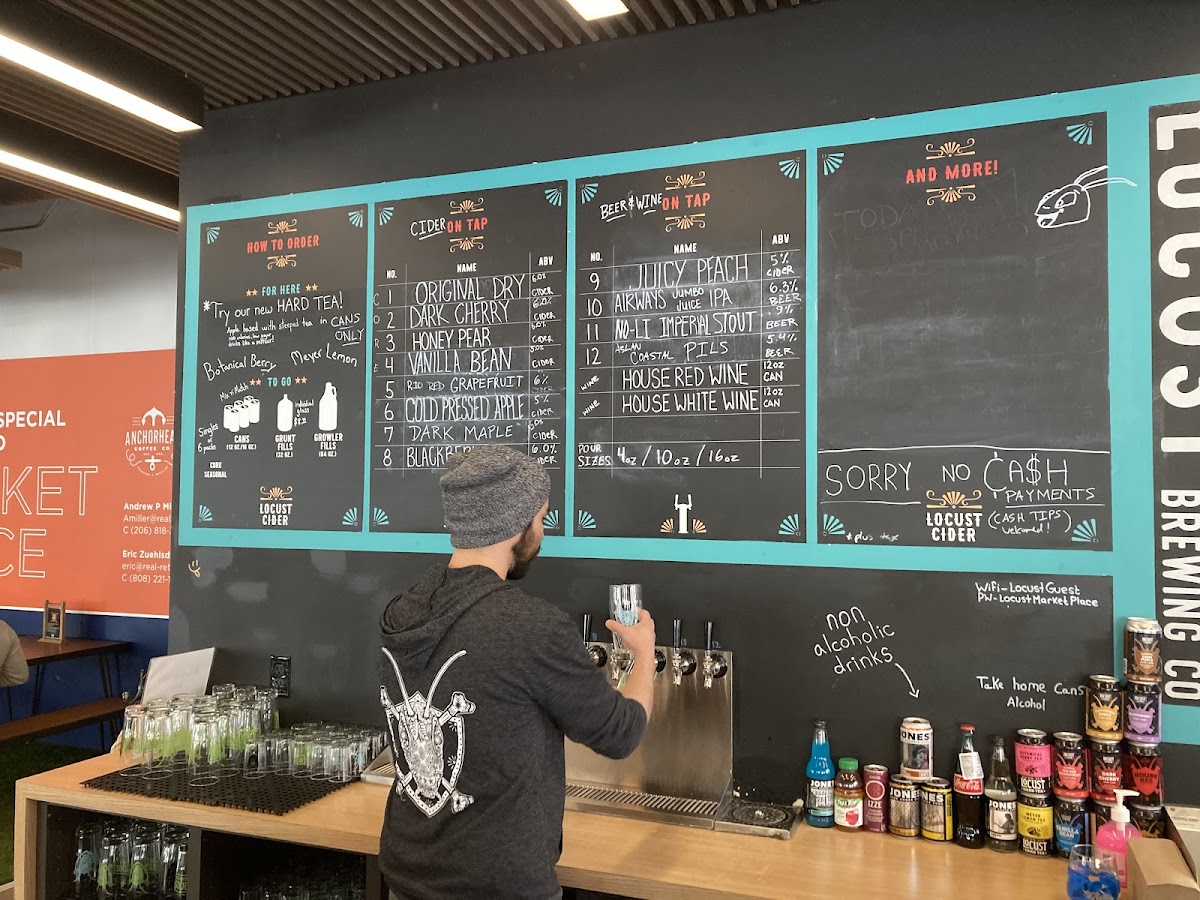 HOW TO ORDER
FOR HERE
*Try our new HARD TEA!
Apple based with steeped tea in CANS ONLY
Botanical Berry
Meyer Lemon
TO GO
Mix n' Match
Singles or 6 packs
CANS
(12 OZ/16 OZ.)
GRUNT FILLS
(32 OZ.)
GROWLER FILLS
(64 OZ.)
CORE
SEASONAL
LOCUST
CIDER
CIDER ON TAP
NO. NAME ABV
CORE
1 ORIGINAL DRY 6.0% CIDER
2 DARK CHERRY 6.0% CIDER
3 HONEY PEAR CIDER
4 VANILLA BEAN CIDER
5 RIO RED GRAPEFRUIT 6%
6 COLD PRESSED APPLE 5% CIDER
7 DARK MAPLE CIDER
8 6.0% CIDER
BEER & WINE ON TAP
NO. NAME ABV
9 JUICY PEACH 5% CIDER
10 AIRWAYS JUMBO JUICE IPA 6.3% BEER
11 NO-LI IMPERIAL STOUT 9% BEER
12 ASLAN COASTAL PILS 5.4% BEER
WINE HOUSE RED WINE 12oz CAN
WINE HOUSE WHITE WINE 12oz CAN
POUR SIZES 4oz / 10oz / 16oz
AND MORE!
SORRY NO CA$H PAYMENTS
(CASH TIPS welcomed!)
LOCUST
CIDER
*plus tax
LOCUST BREWING CO
WiFi-LocustGuest
PW-LocustMarketPlace
non
alcoholic
drinks
Take home Cans
Alcohol
SPECIAL
KET
CE
ANCHORHEAD
COFFEE CO
Andrew P Mi
Amiller@real
C (206) 818-
Eric Zuehlsd
eric@real-ret
C (808) 221-1
JONES
JONES
JONES
JONES
IZZE
Coca-Cola
LOCUST
LOCUST
DARK CHERRY
VANILLA BEAN